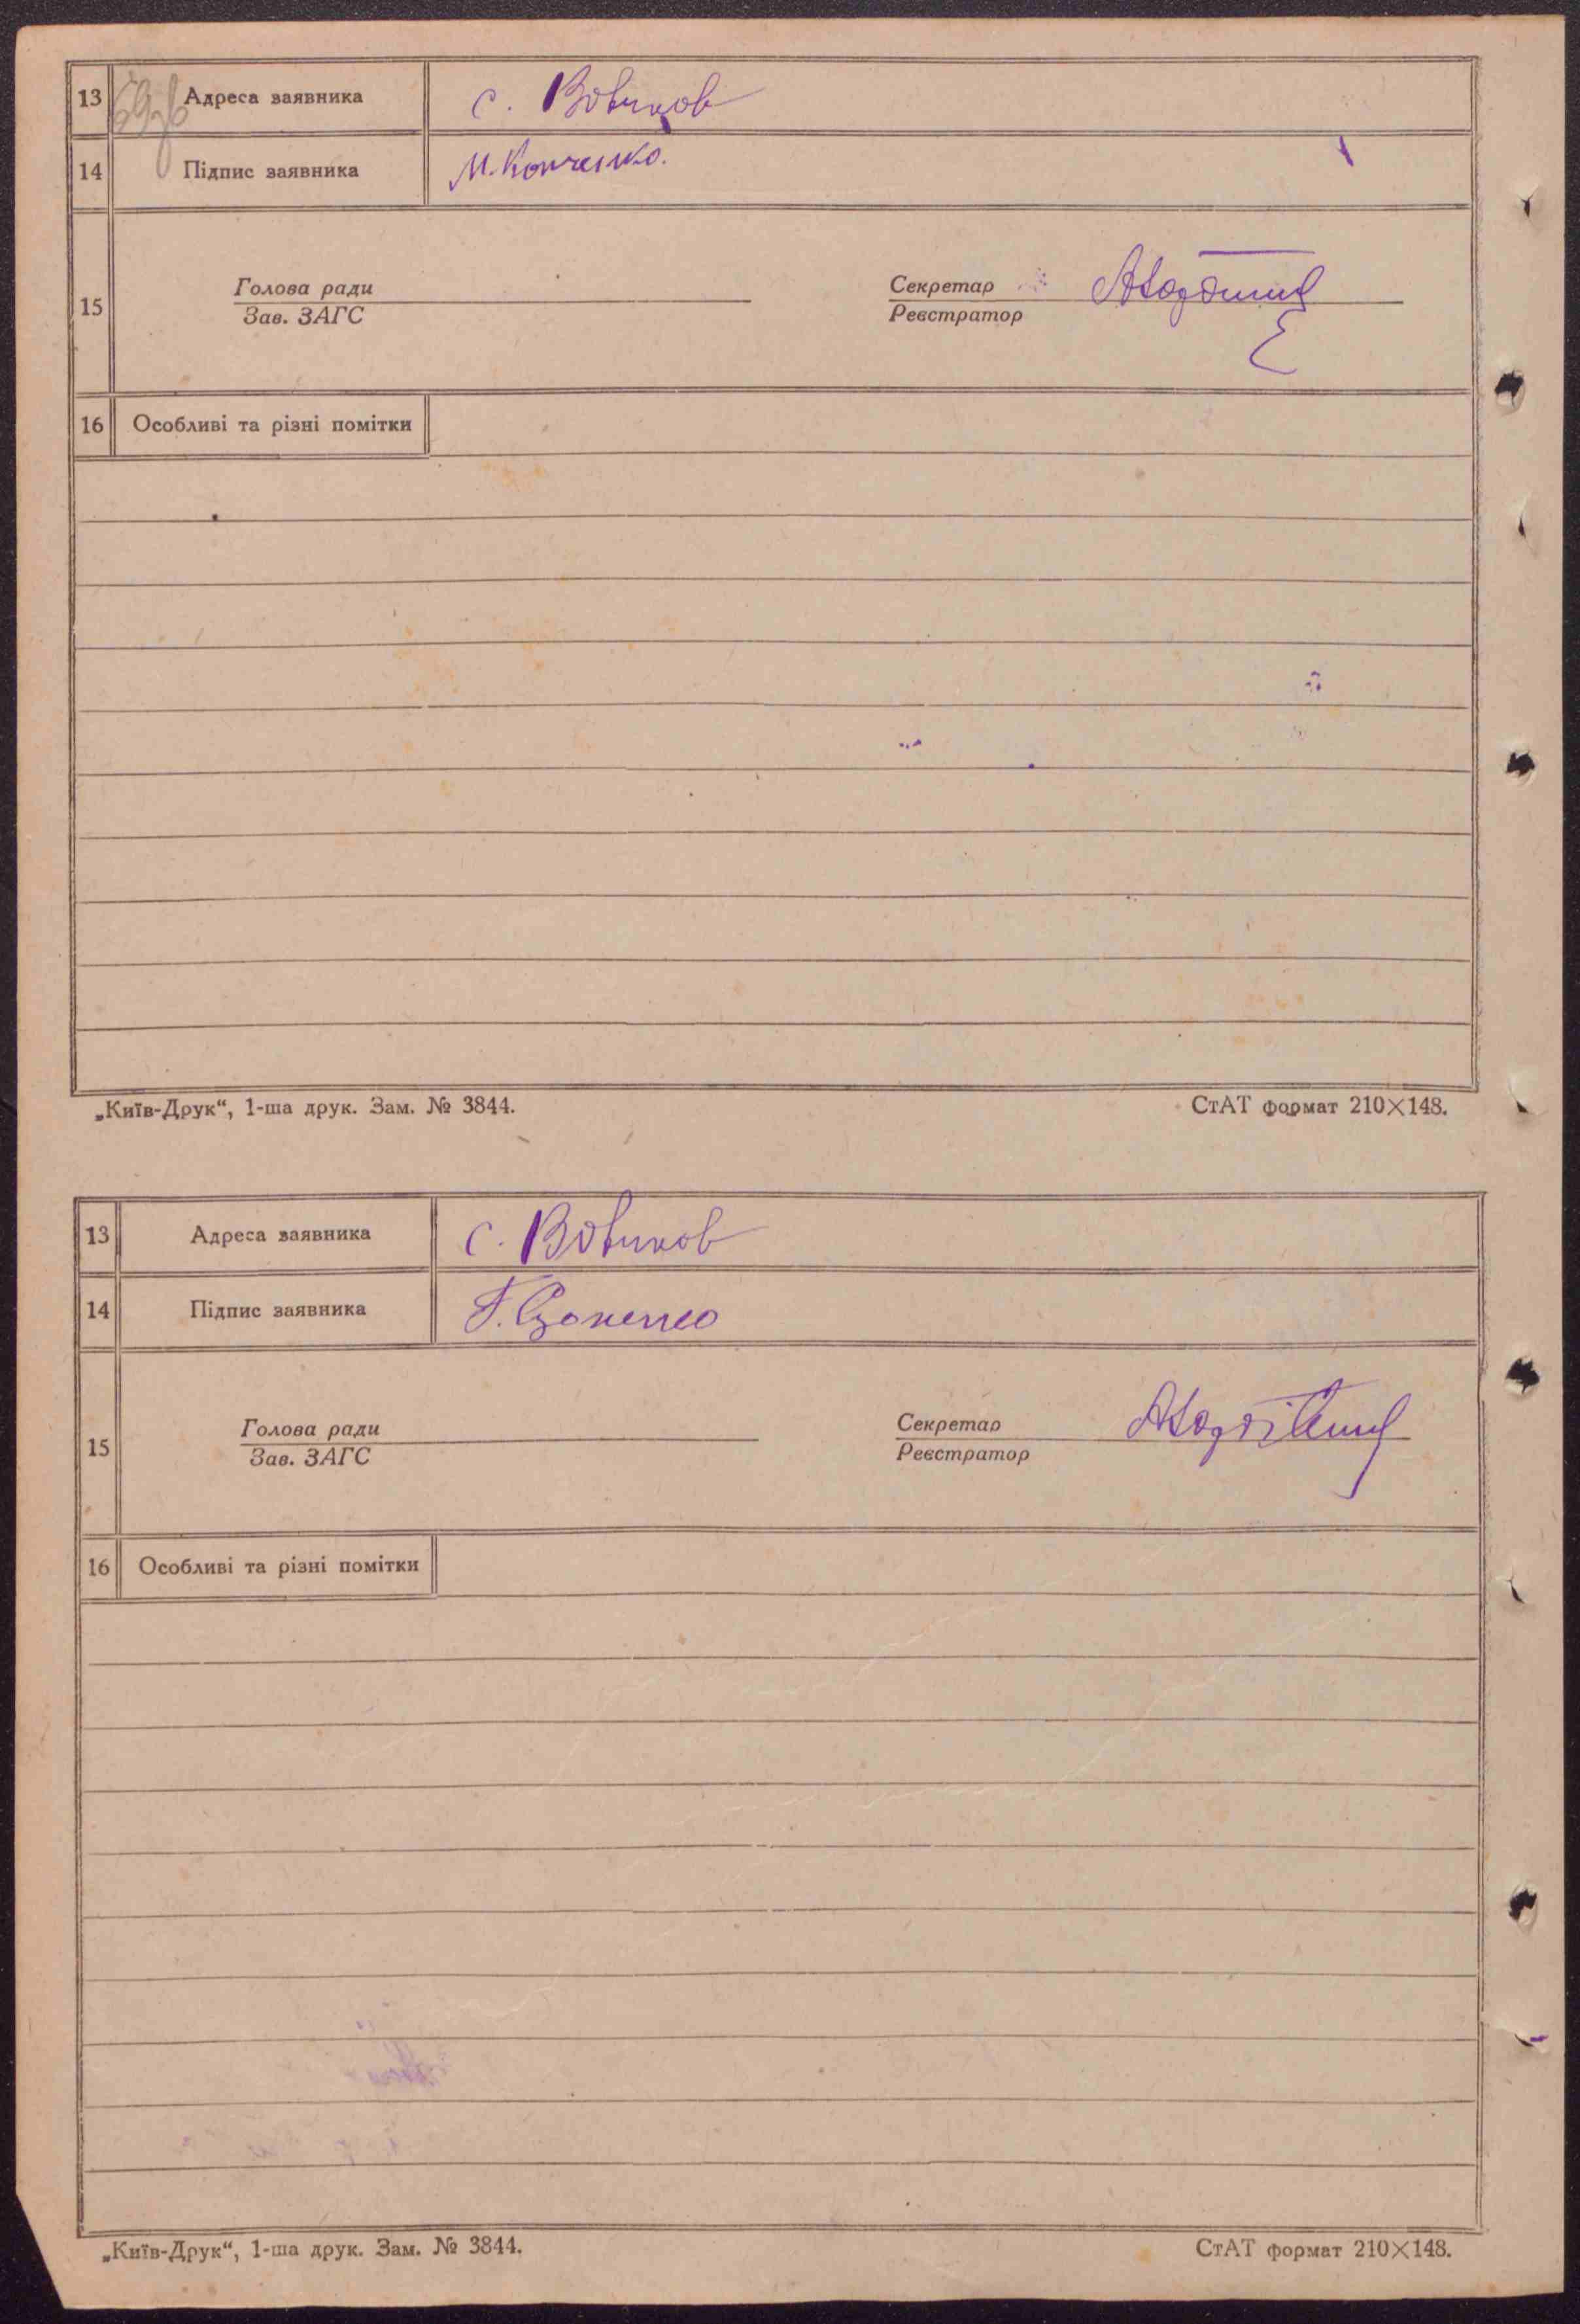 13 Адреса заявника с. Вовчков
14 Підпис заявника М. Конченко.
Голова ради Секретар
15
Зав. ЗАГС Реєстратор
16 Особливі та різні помітки
„Київ-Друк“, 1-ша друк. Зам. № 3844. СтАТ формат 210×148.
13 Адреса заявника с. Вовчков
14 Підпис заявника Г.
Голова ради Секретар
15
Зав. ЗАГС Реєстратор
16 Особливі та різні помітки
„Київ-Друк“, 1-ша друк. Зам. № 3844. СтАТ формат 210×148.